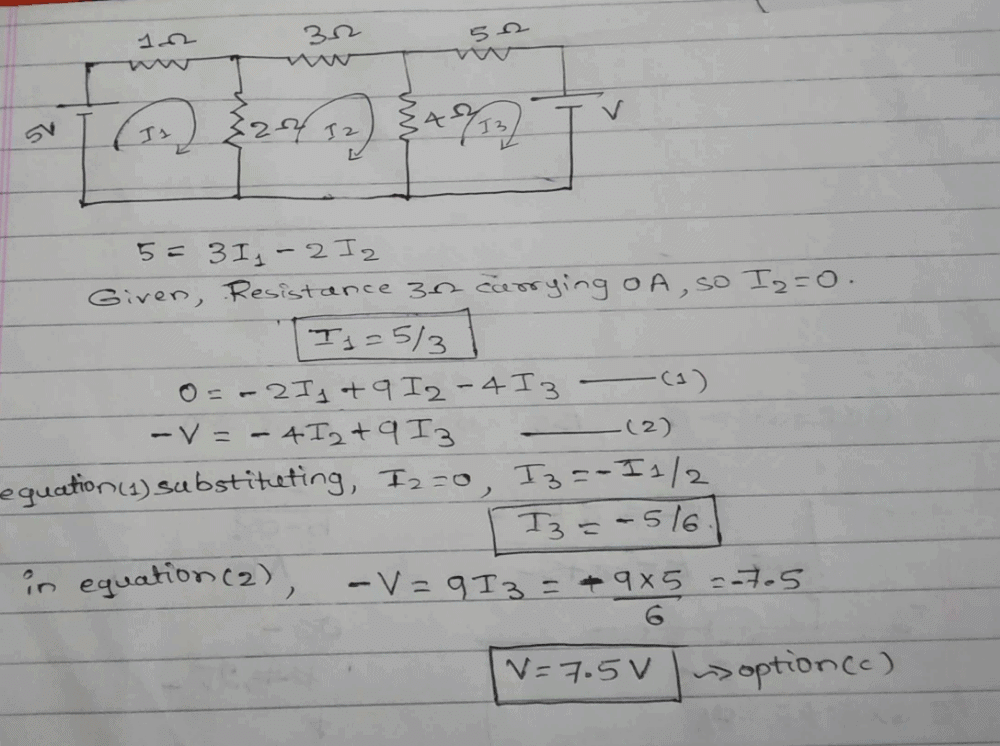 1Ω 3Ω 5Ω
5V I1 2Ω I2 4Ω I3 V
5 = 3I₁ - 2I₂
Given, Resistance 3Ω carrying 0A, so I₂=0.
I₁ = 5/3
0 = -2I₁ + 9I₂ - 4I₃ —(1)
-V = -4I₂ + 9I₃ —(2)
equation(1) substituting, I₂=0, I₃ = -I₁/2
I₃ = -5/6.
in equation(2), -V = 9I₃ = -9×5/6 = -7.5
V = 7.5V → option(c)